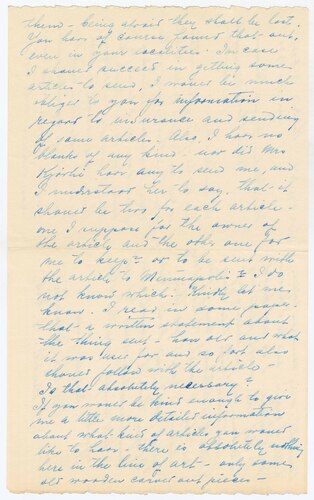 them - being afraid they shall be lost.
You have of course found that out,
even in your localities. In case
I should succeed in getting some
articles to send, I would be much
obliged to you for information in
regard to insurance and sending
of same articles. Also, I have no
blanks of any kind - nor did Mrs
have any to send me, and
I understood her to say, that it
should be two for each article -
one I suppose for the owner of
the article and the other one for
me to keep - or to be send with
the article to Minneapolis I do
not know which. Kindly let me
know. I read in some paper
that a written statement about
the thing sent - how old and what
it was used for and so fort also
should follow with the article -
Is that absolutely necessary?
If you would be kind enough to give
me a little more detailed information
about what kind of articles you would
like to have. There is absolutely nothing
here in the line of art - only some
old wooden carved out pieces -